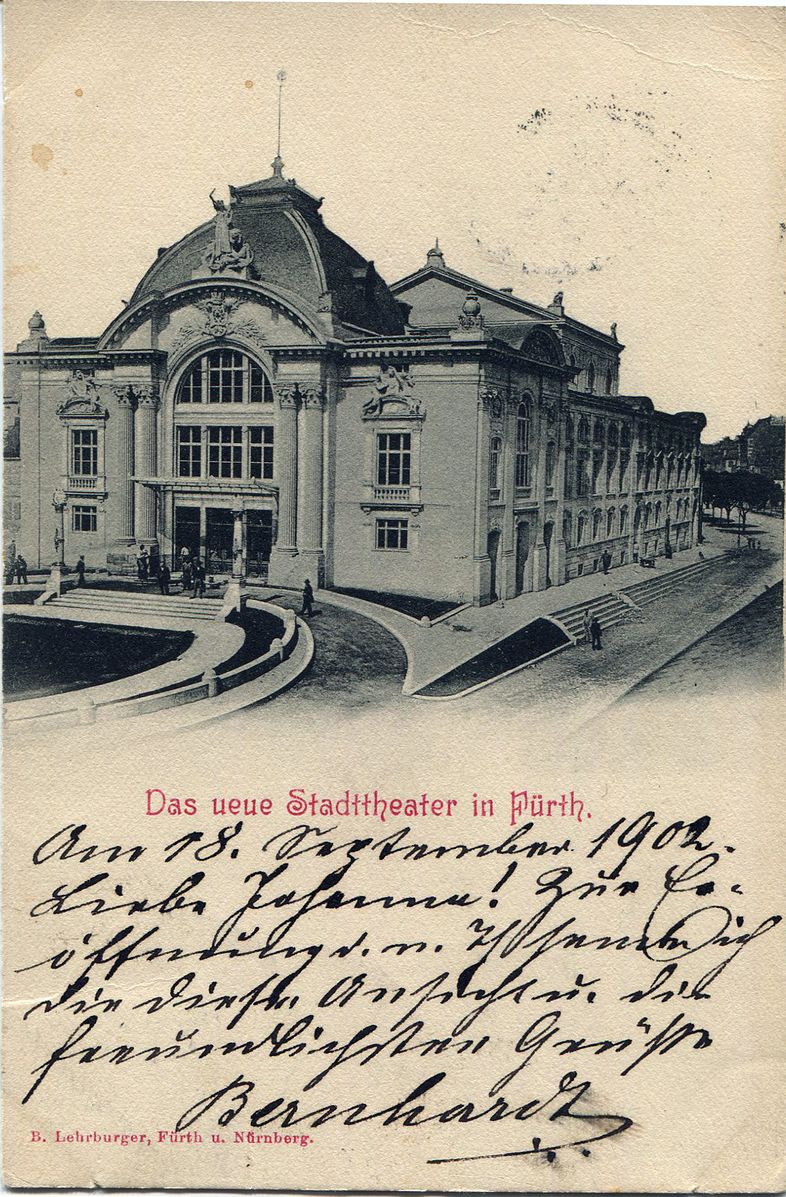 Das neue Stadttheater in Fürth.
Am 18. September 1902.
Liebe Johanna! Zur Er-
öffnung d. n. Th. sende ich
Dir diese Ansicht u. die
freundlichsten Grüße
Bernhardt
B. Lehrburger, Fürth u. Nürnberg.